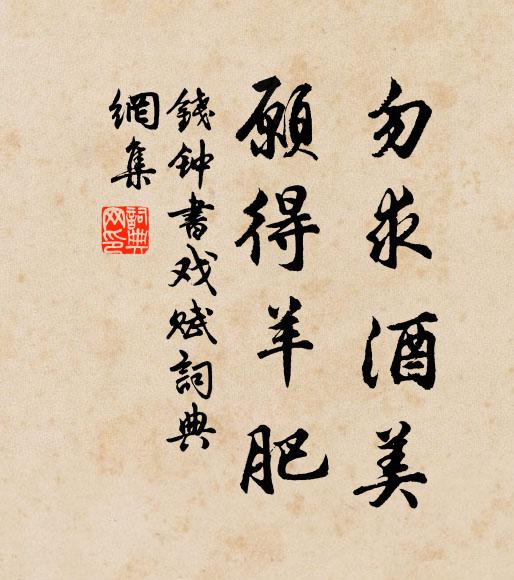 勿求酒美
願得羊肥
錢钟書戏赋詞典
網集
詞典
网印